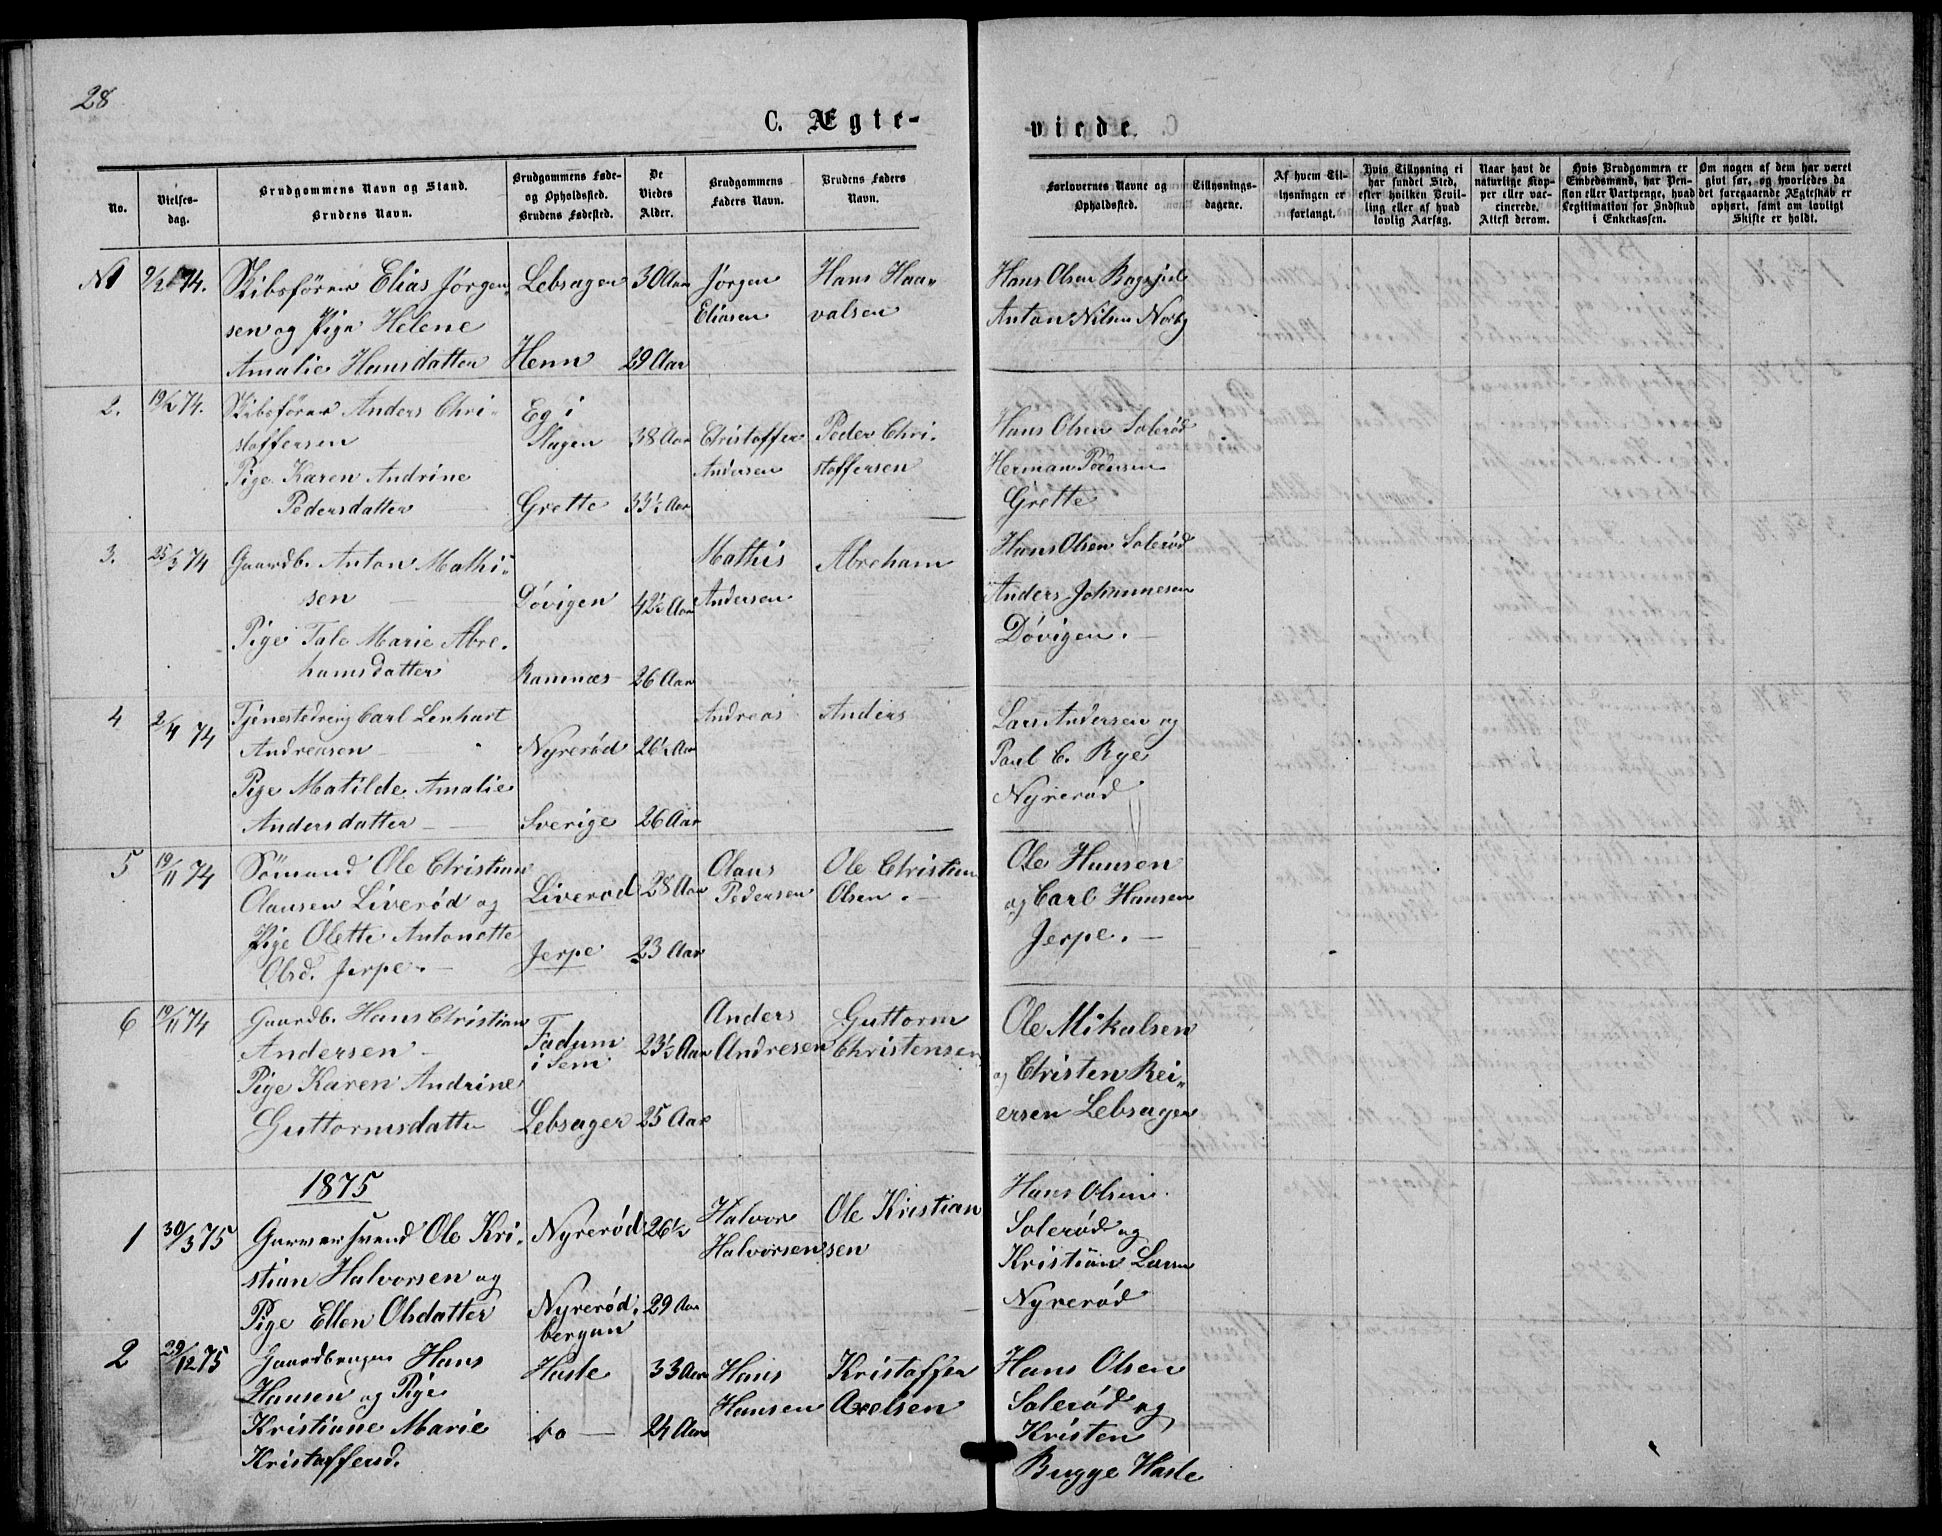 28
C. Ægte-
viede.
No.
Vielses-
dag.
Brudgommens Navn og Stand.
Brudens Navn.
Brudgommens Føde-
og Opholdssted.
Brudens Fødested.
De
Viedes
Alder.
Brudgommens
Faders Navn.
Brudens Faders
Navn.
Forlovernes Navne og
Opholdssted.
Tillysnings-
dagene.
Af hvem Til-
lysningen er
forlangt.
Hvis Tillysning ei
har fundet Sted,
efter hvilken Bevil-
ling eller af hvad
lovlig Aarsag.
Naar havt de
naturlige Kop-
per eller vac-
cinerede.
Attest derom.
Hvis Brudgommen er
Embedsmand, har Pen-
sion eller Vartpenge, hvad
Legitimation for Indskud
i Enkekassen.
Om nogen af dem har været
gift før, og hvorledes da
det foregaaende Ægteskab er
ophørt, samt om lovligt
Skifte er holdt.
N 1 9/2 74. Skibsfører Elias Jørgen- Lebsagen 30 Aar Jørgen Hans Haa- Hans Olsen
sen og Pige Helene Eliasen valsen Anton Nilsen Norby
Amalie Hansdatter Henn 29 Aar
2. 19/2 74. Skibsfører Anders Chri- Eg i
stoffersen Slagen 38 Aar Christoffer Peder Chri- Hans Olsen Solerød
Pige Karen Andrine Andersen stoffersen Herman Pedersen
Pedersdatter Grette 33½ Aar Grette
3. 25/3 74 Gaardb. Anton Mathi- Mathis Abreham Hans Olsen Solerød
sen Døvigen 42½ Aar Andersen Anders Johannesen
Pige Tale Marie Abre- Døvigen.
hamsdatter Ramnæs 26 Aar
4 2/4 74 Tjenestedreng Carl Lenhart Andreas Anders Lars Andersen og
Andreasen Nyrerød 26½ Aar Paul C. Rye
Pige Matilde Amalie Nyrerød
Andersdatter Sverige 26 Aar
5 19/11 74 Sømand Ole Christian Liverød 28 Aar Olaus Ole Christian Ole Hansen
Olausen Liverød og Pedersen Olsen. og Carl Hansen
Pige Olette Antonette Jerpe 23 Aar Jerpe.
Olsd. Jerpe.
6 19/11 74 Gaardb. Hans Christian Fadum Anders Guttorm Ole Mikalsen
Andersen i Sem 23½ Aar Andresen Christensen og Christen Rei-
Pige Karen Andrine ersen Lebsagen
Guttormsdatter Lebsagen 25 Aar
1875
1 30/3 75 Garversvend Ole Kri- Nyrerød 26½ Halvor Ole Kristian Hans Olsen
stian Halvorsen og Halvorsen sen Solerød og
Pige Ellen Olsdatter Nyrerød- 29 Aar Kristian Larsen
bergan Nyrerød
2 29/12 75 Gaardbruger Hans Hasle 33 Aar Hans Kristoffer Hans Olsen
Hansen og Pige Hansen Axelsen Solerød og
Kristiane Marie do 24 Aar Kristen
Kristoffersd. Bugge Hasle